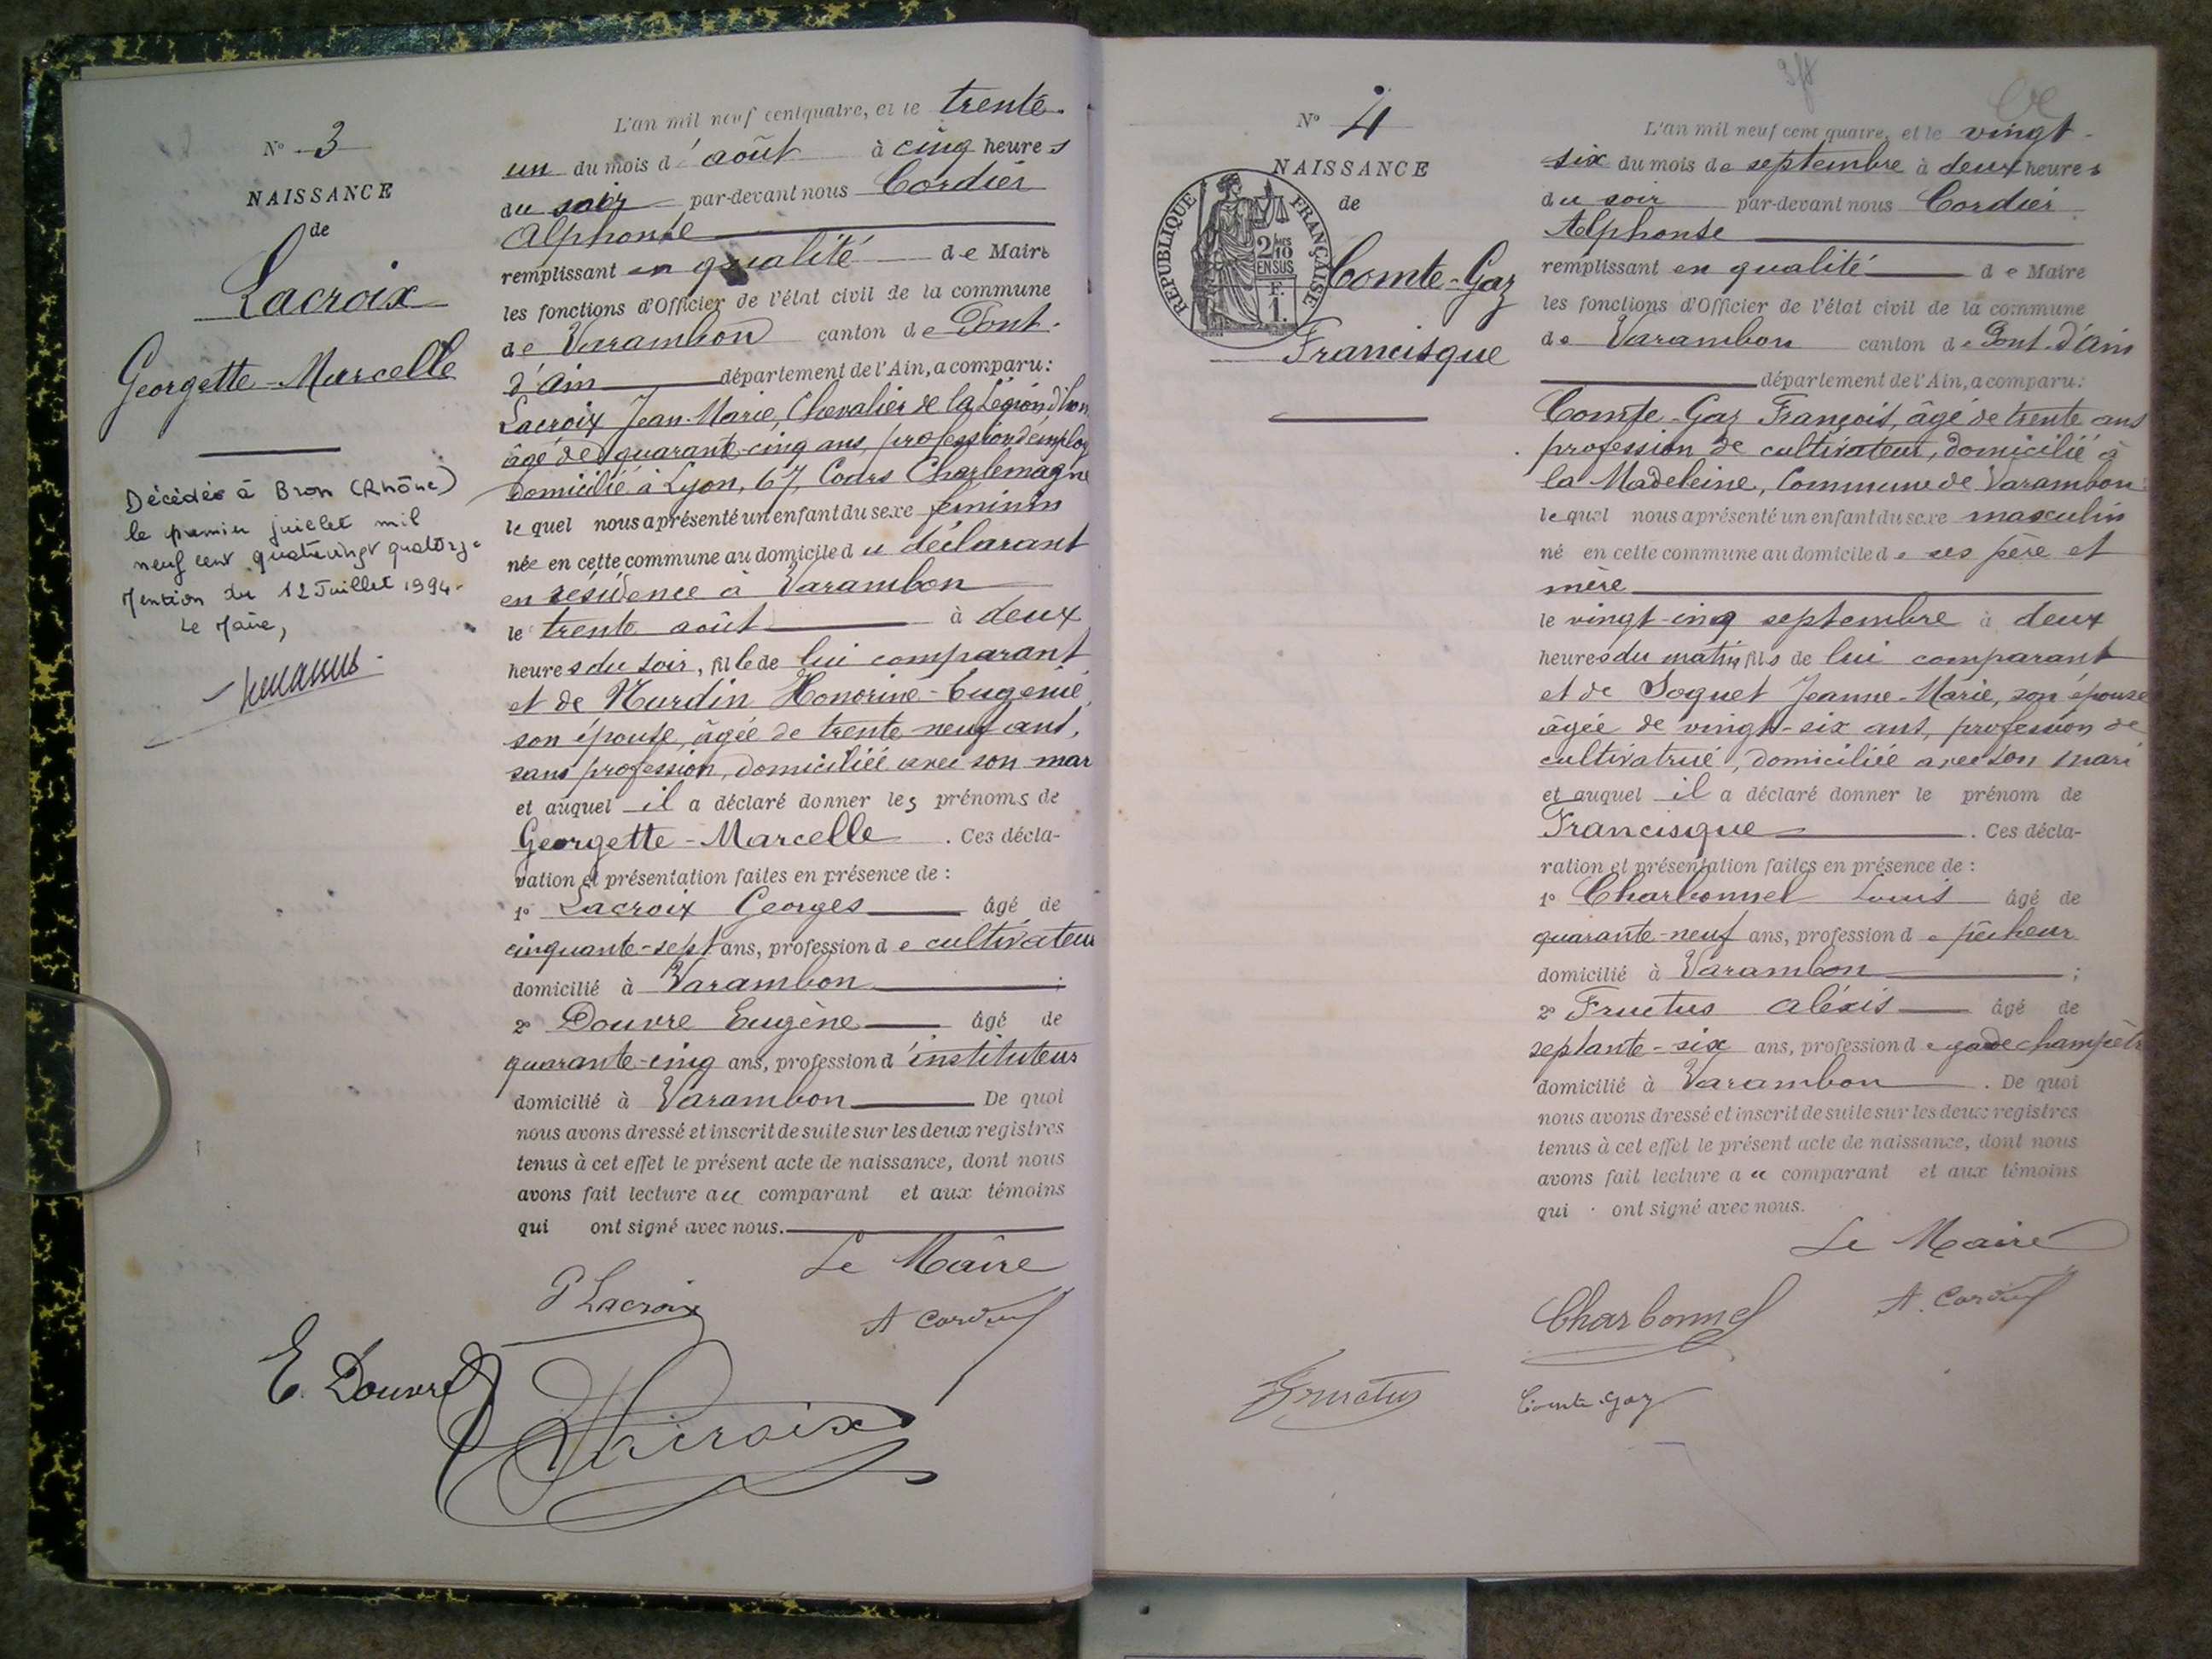 N° 3
NAISSANCE
de
Lacroix
Georgette-Marcelle
Décédée à Bron (Rhône)
le premier juillet mil
neuf cent quatre vingt quatorze
Mention du 12 Juillet 1994.
Le Maire,
L'an mil neuf cent quatre, et le trente
un du mois d'août à cinq heures
du soir par-devant nous Cordier
Alphonse
remplissant en qualité de Maire
les fonctions d'Officier de l'état civil de la commune
de Varambon canton de Pont
d'Ain département de l'Ain, a comparu:
Lacroix Jean-Marie, Chevalier de la Légion d'hon
âgé de quarante-cinq ans, profession d'employ
domicilié à Lyon, 67, Cours Charlemagne
lequel nous a présenté un enfant du sexe féminin
née en cette commune au domicile du déclarant
en résidence à Varambon
le trente août à deux
heures du soir, fille de lui comparant
et de Nurdin Honorine-Eugénie,
son épouse, âgée de trente neuf ans,
sans profession, domiciliée avec son mar
et auquel il a déclaré donner les prénoms de
Georgette-Marcelle. Ces décla-
ration et présentation faites en présence de :
1° Lacroix Georges âgé de
cinquante-sept ans, profession de cultivateur
domicilié à Varambon ;
2° Douvre Eugène âgé de
quarante-cinq ans, profession d'instituteur
domicilié à Varambon De quoi
nous avons dressé et inscrit de suite sur les deux registres
tenus à cet effet le présent acte de naissance, dont nous
avons fait lecture au comparant et aux témoins
qui ont signé avec nous.
Le Maire
Lacroix
A Cordier
E. Douvre
Lacroix
N° 4
NAISSANCE
de
RÉPUBLIQUE FRANÇAISE
2/10
EN SUS
F.
1.
Comte-Gaz
Francisque
L'an mil neuf cent quatre, et le vingt-
six du mois de septembre à deux heures
du soir par-devant nous Cordier
Alphonse
remplissant en qualité de Maire
les fonctions d'Officier de l'état civil de la commune
de Varambon canton de Pont-d'Ain
département de l'Ain, a comparu:
Comte-Gaz François, âgé de trente ans
profession de cultivateur, domicilié à
la Madeleine, Commune de Varambon
lequel nous a présenté un enfant du sexe masculin
né en cette commune au domicile de ses père et
mère
le vingt-cinq septembre à deux
heures du matin fils de lui comparant
et de Soquet Jeanne-Marie, son épouse
âgée de vingt-six ans, profession de
cultivatrice, domiciliée avec son mari
et auquel il a déclaré donner le prénom de
Francisque. Ces décla-
ration et présentation faites en présence de :
1° Charbonnel Louis âgé de
quarante-neuf ans, profession de pêcheur
domicilié à Varambon ;
2° Fructus Aléxis âgé de
septante-six ans, profession de garde champêtr
domicilié à Varambon. De quoi
nous avons dressé et inscrit de suite sur les deux registres
tenus à cet effet le présent acte de naissance, dont nous
avons fait lecture au comparant et aux témoins
qui ont signé avec nous.
Le Maire
Charbonnel
A. Cordier
Fructus
Comte-Gaz